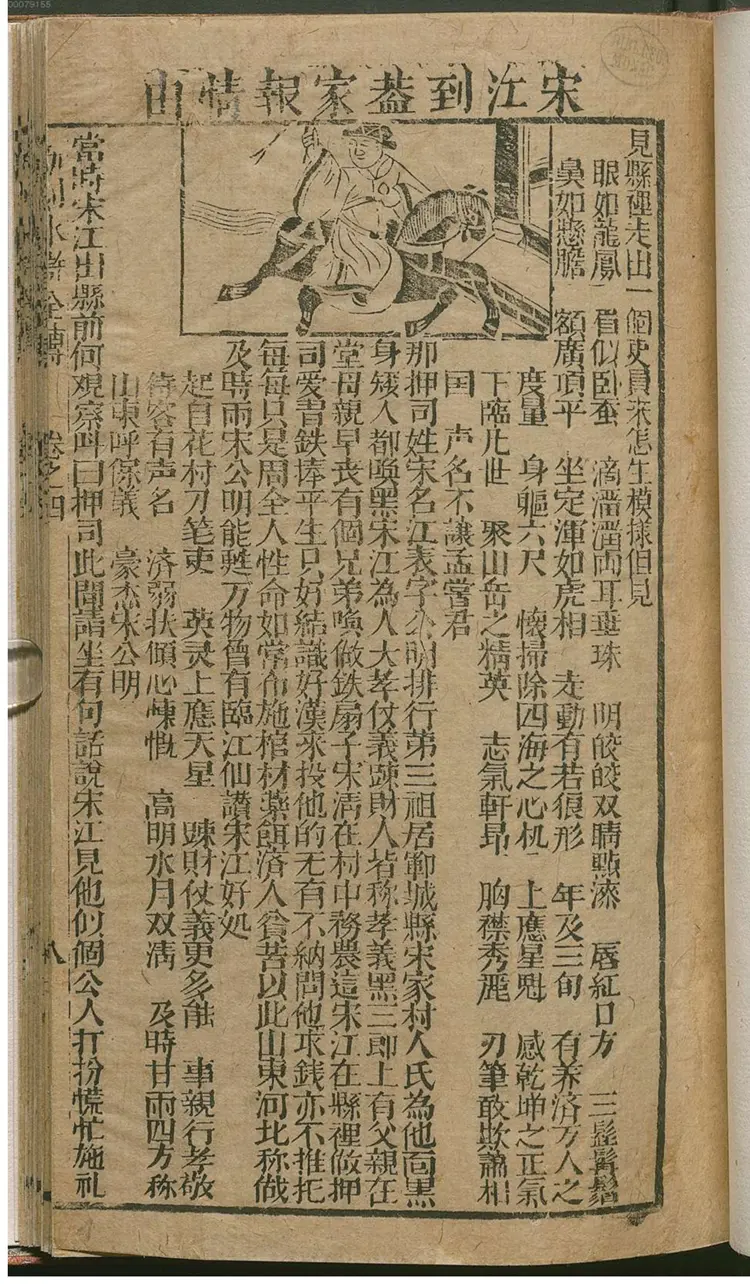 00079155
宋江到蓋家報情由
見縣裡走出一個吏員來怎生模樣但見
眼如龍鳳　眉似臥蚕　滴溜溜両耳垂珠　明皎皎双睛點漆　唇紅口方　三髭髯鬚
鼻如懸膽　額廣項平　坐定渾如虎相　走動有若狼形　年及三旬　有养済万人之
度量　身軀六尺　懷掃除四海之心机　上應星魁　感乾坤之正氣
下臨凡世　聚山岳之精英　志氣軒昂　胸襟秀麗　刀筆敢欺蕭相
国　声名不讓孟嘗君
那押司姓宋名江表字公明排行第三祖居鄆城縣宋家村人氏為他面黑
身矮人都喚黑宋江為人大孝仗義踈財人皆称孝義黑三郎上有父親在
堂母親早丧有個兄弟喚做鉄扇子宋清在村中務農這宋江在縣裡做押
司爱習鉄棒平生只好結識好漢來投他的无有不納問他求錢亦不推托
每每只是周全人性命如常布施棺材藥餌済人貧苦以此山東河北称做
及時雨宋公明能甦万物曾有臨江仙讃宋江好処
起自花村刀笔吏　英灵上應天星　踈財仗義更多能　事親行孝敬
待客有声名　済弱扶傾心慷慨　高明水月双清　及時甘雨四方称
山東呼保義　豪杰宋公明
當時宋江出縣前何观察叫曰押司此間請坐有句話說宋江見他似個公人打扮慌忙施礼
水滸全傳　卷之四　八